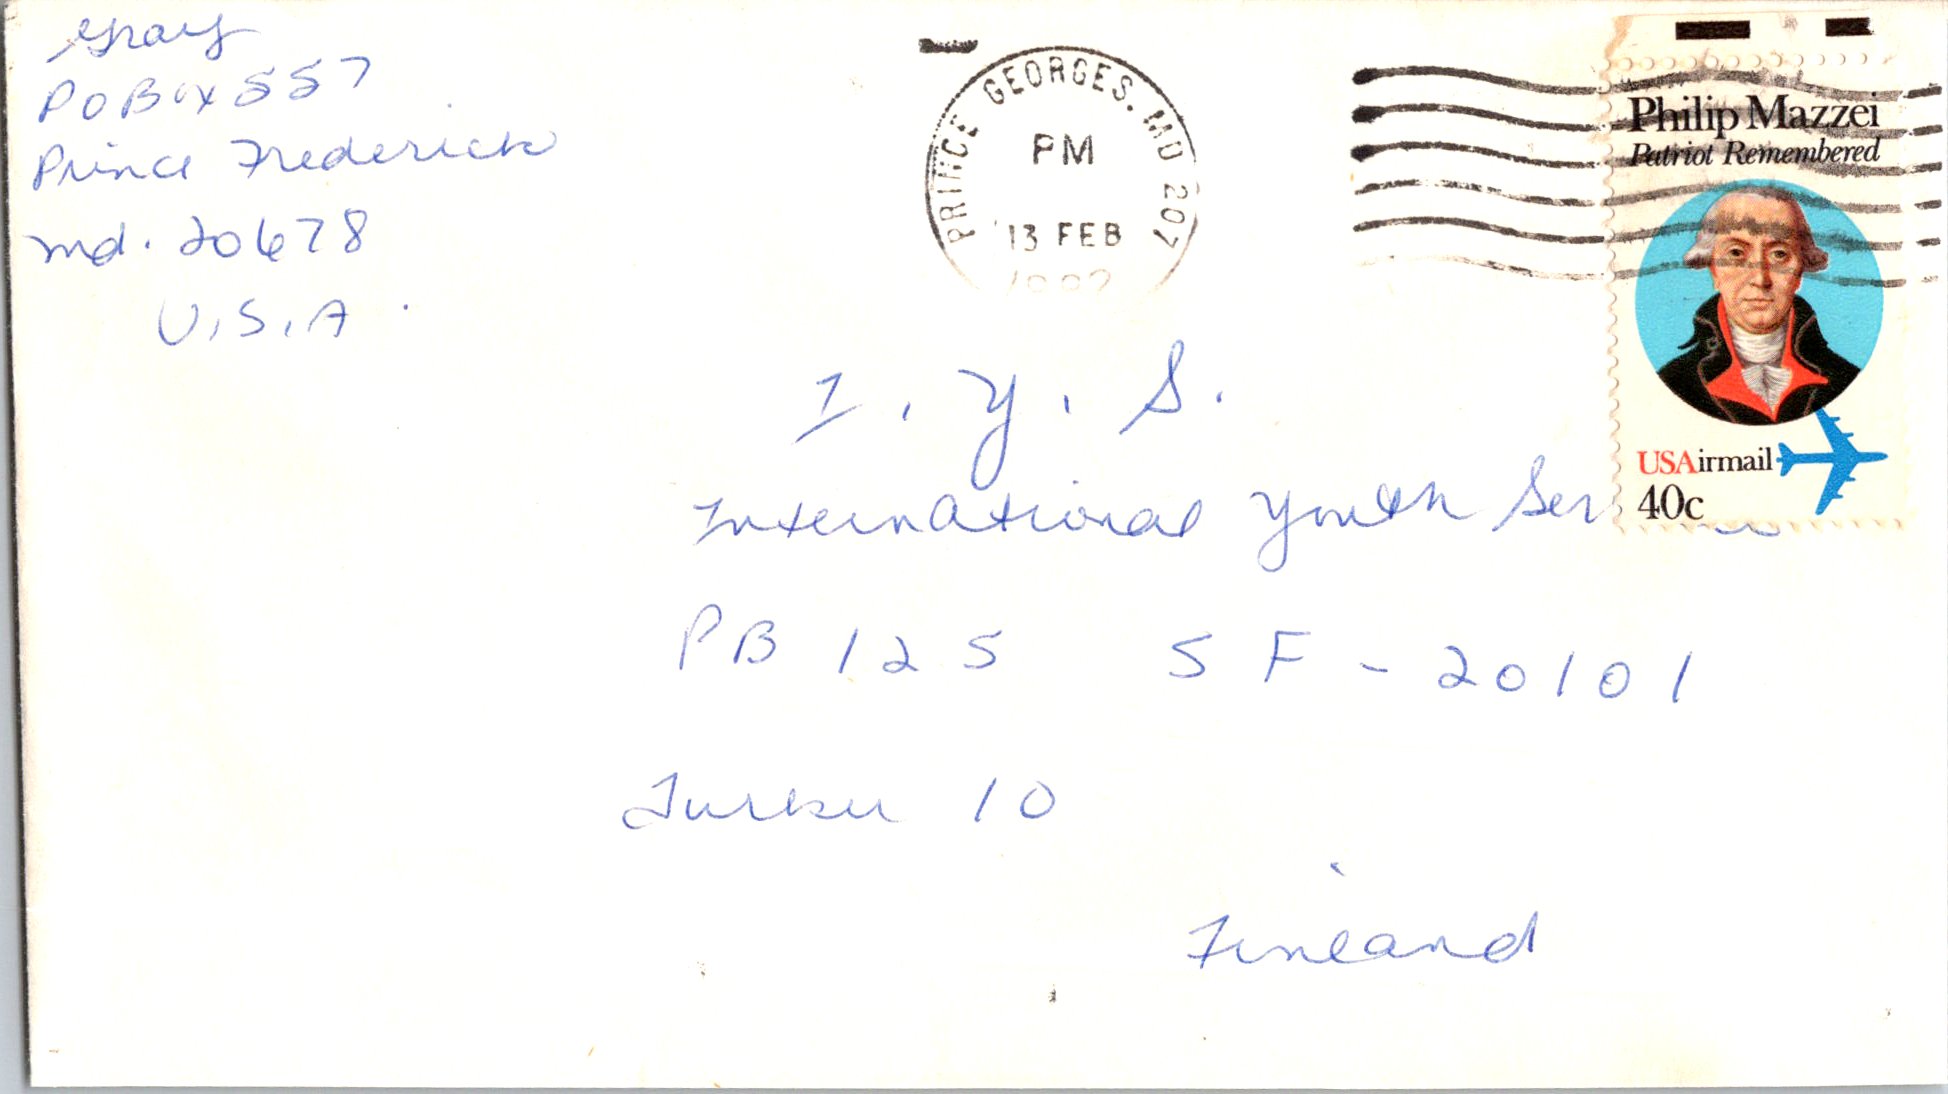 Gray
PO Box 557
Prince Frederick
Md. 20678
U.S.A.
PRINCE GEORGES. MD 207
PM
13 FEB
Philip Mazzei
Patriot Remembered
USAirmail
40c
I.Y.S.
International Youth Ser
PB 125 SF-20101
Turku 10
Finland